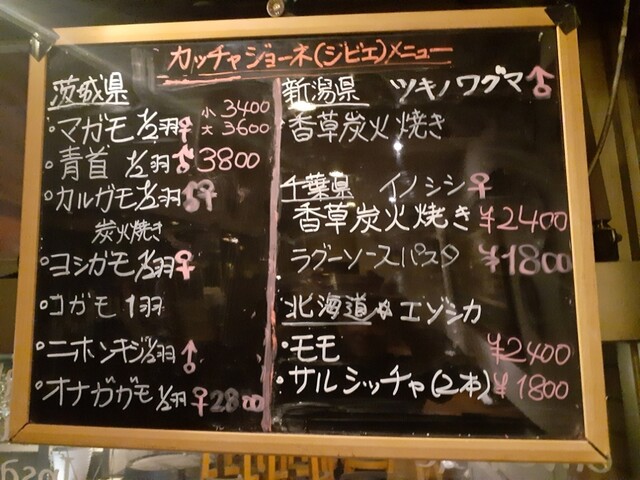 カッチャジョーネ(ジビエ)メニュー
茨城県
・マガモ1/2羽♀ 小 3400
大 3600
・青首 1/2羽♂3800
・カルガモ1/2羽♂♀
炭火焼き
・ヨシガモ1/2羽♀
・コガモ 1羽
・ニホンキジ1/2羽♂
・オナガガモ1/2羽♀2800
新潟県 ツキノワグマ♂
・香草炭火焼き
千葉県 イノシシ♀
香草炭火焼き ¥2400
ラグーソースパスタ ¥1800
北海道 エゾシカ
・モモ ¥2400
・サルシッチャ(2本)¥1800